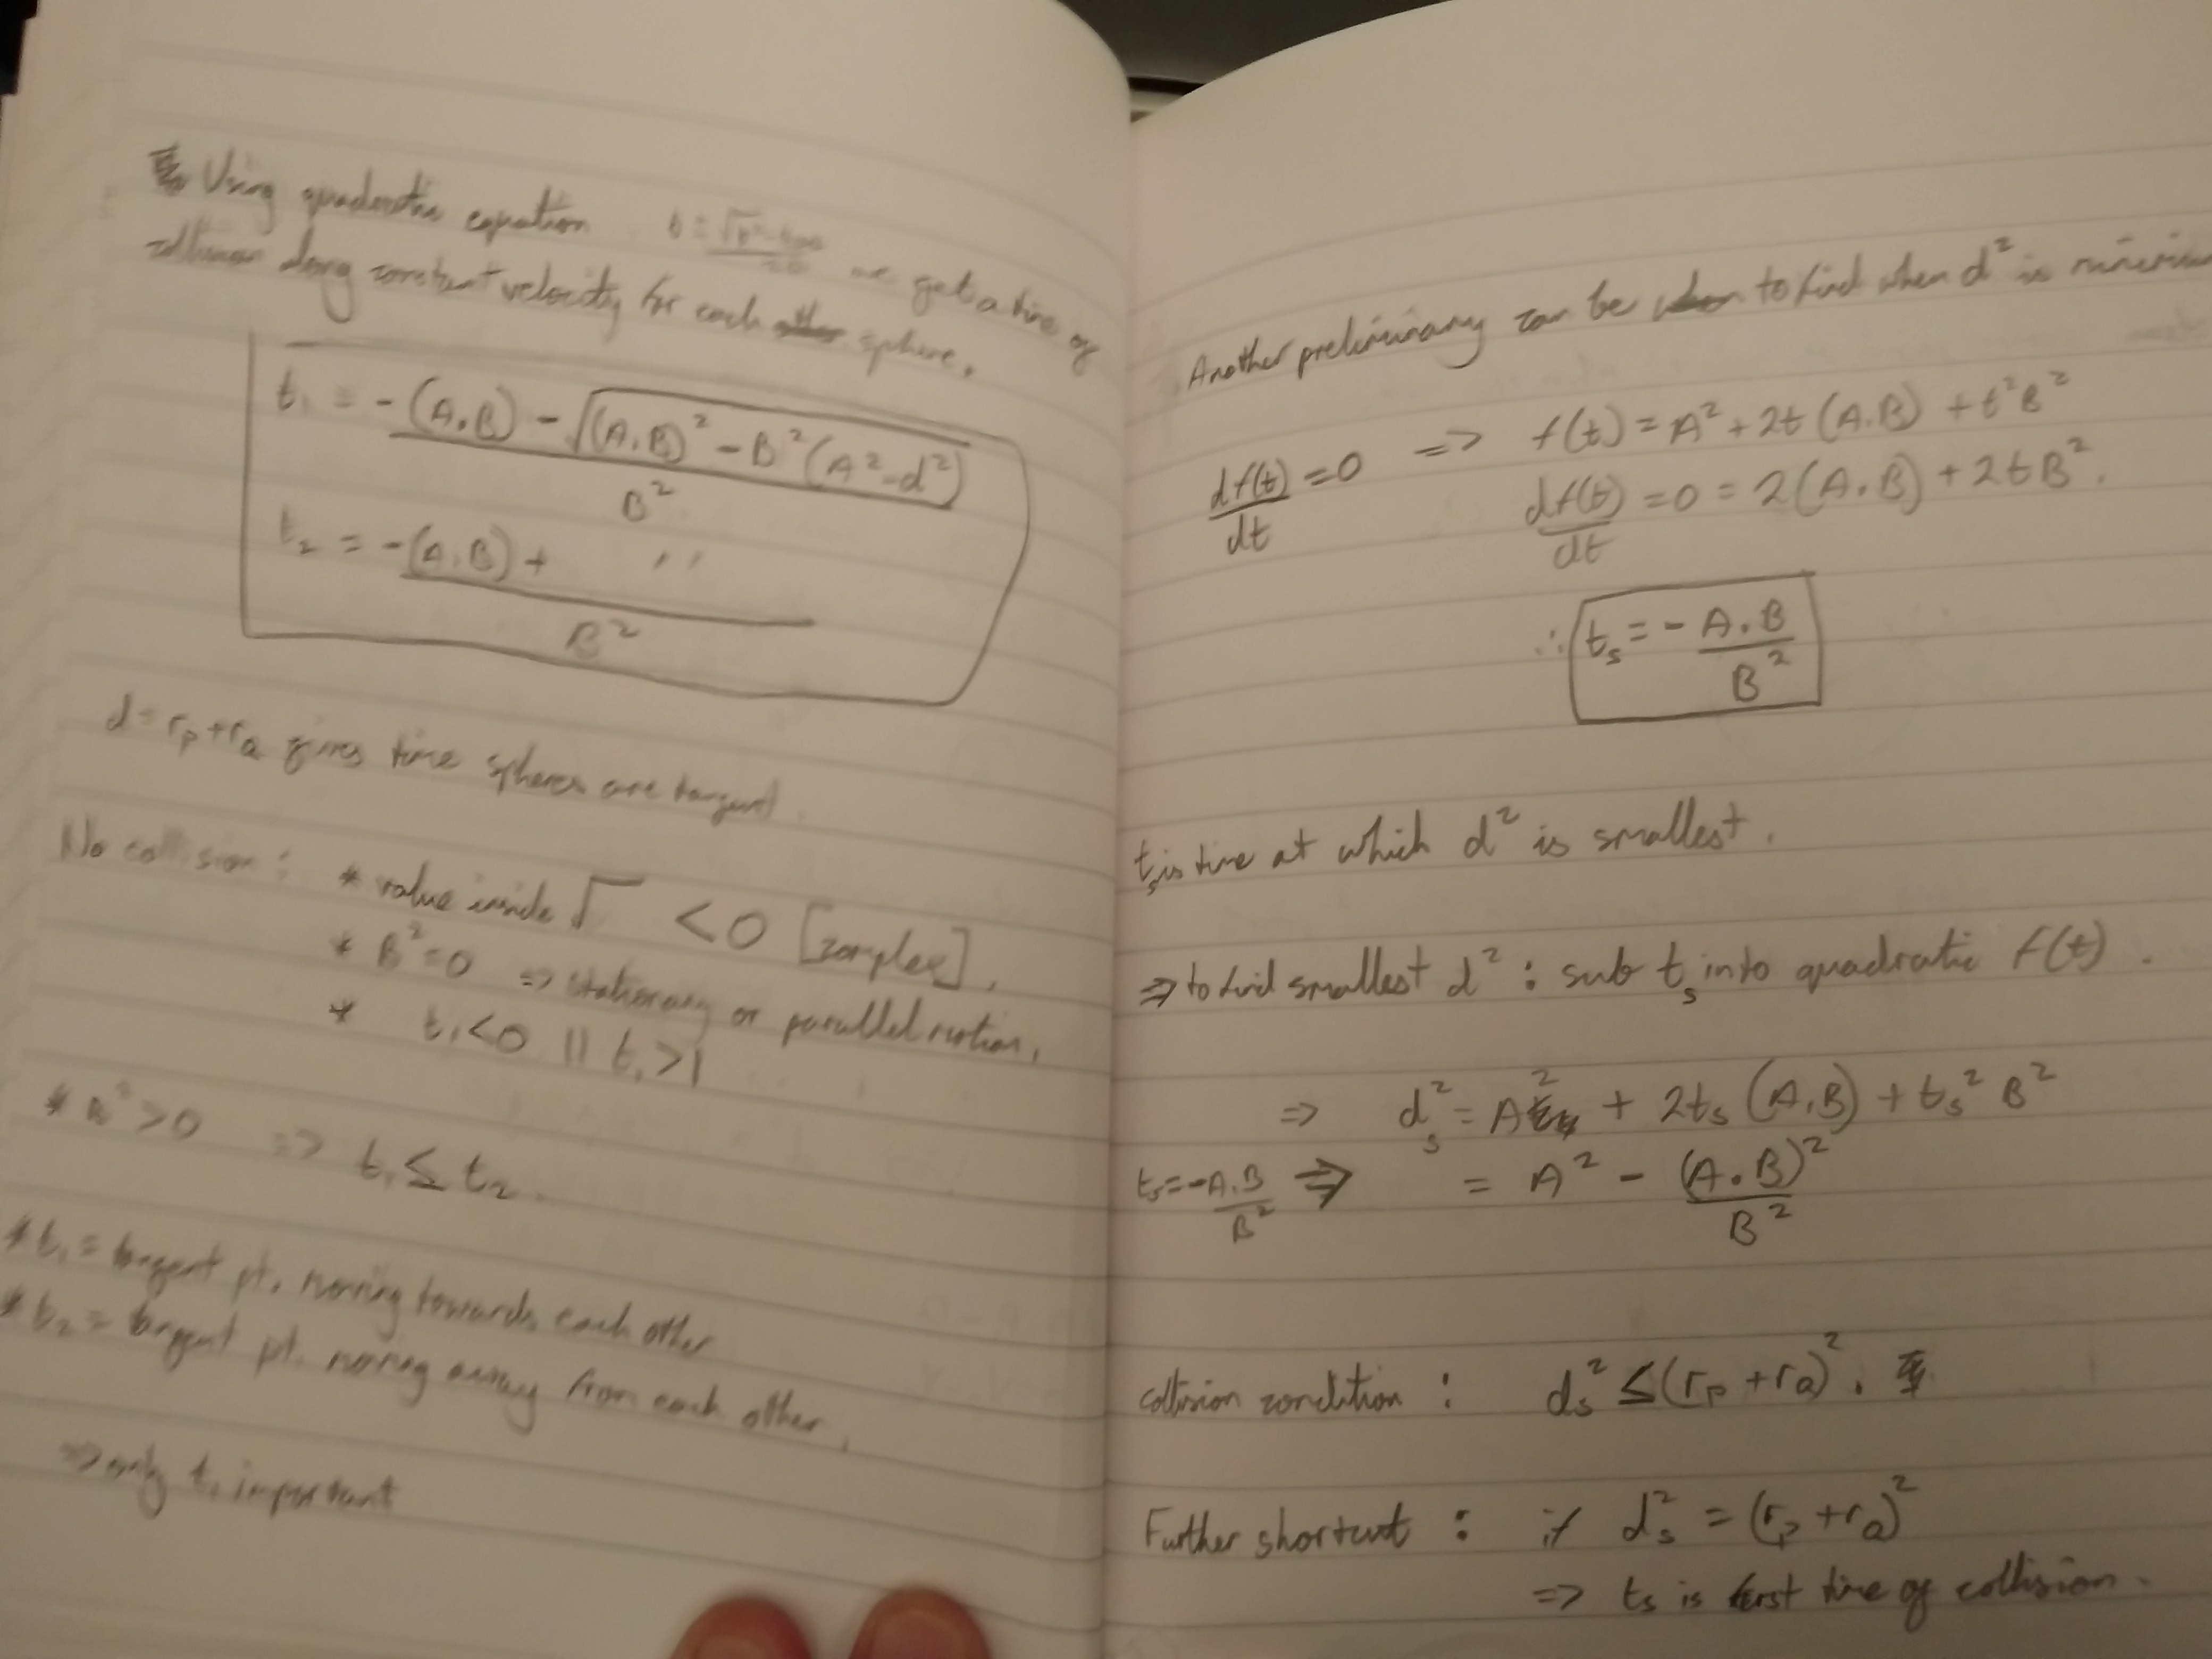 Using quadratic equation b ± √b²-4ac we get a time of
collision along constant velocity for each sphere.
t₁ = -(A.B) - √(A.B)² - B²(A²-d²)
B²
t₂ = -(A.B) + ,,
B²
d = rp + rQ gives time spheres are tangent.
No collision : * value inside √ < 0 [complex],
* B² = 0 => stationary or parallel motion,
* t₁<0 || t₁>1
* B² > 0 => t₁ ≤ t₂.
* t₁ = tangent pt. moving towards each other
* t₂ = tangent pt. moving away from each other,
=> only t₁ important
Another preliminary can be to find when d² is
df(t)/dt = 0 => f(t) = A² + 2t(A.B) + t²B²
df(t)/dt = 0 = 2(A.B) + 2tB².
∴ ts = - A.B / B²
ts is time at which d² is smallest.
=> to find smallest d² : sub ts into quadratic f(t).
=> ds² = A² + 2ts(A.B) + ts²B²
ts = -A.B / B² => = A² - (A.B)² / B²
Collision condition : ds² ≤ (rp + rQ)².
Further shortcut : if ds² = (rp + rQ)²
=> ts is first time of collision.